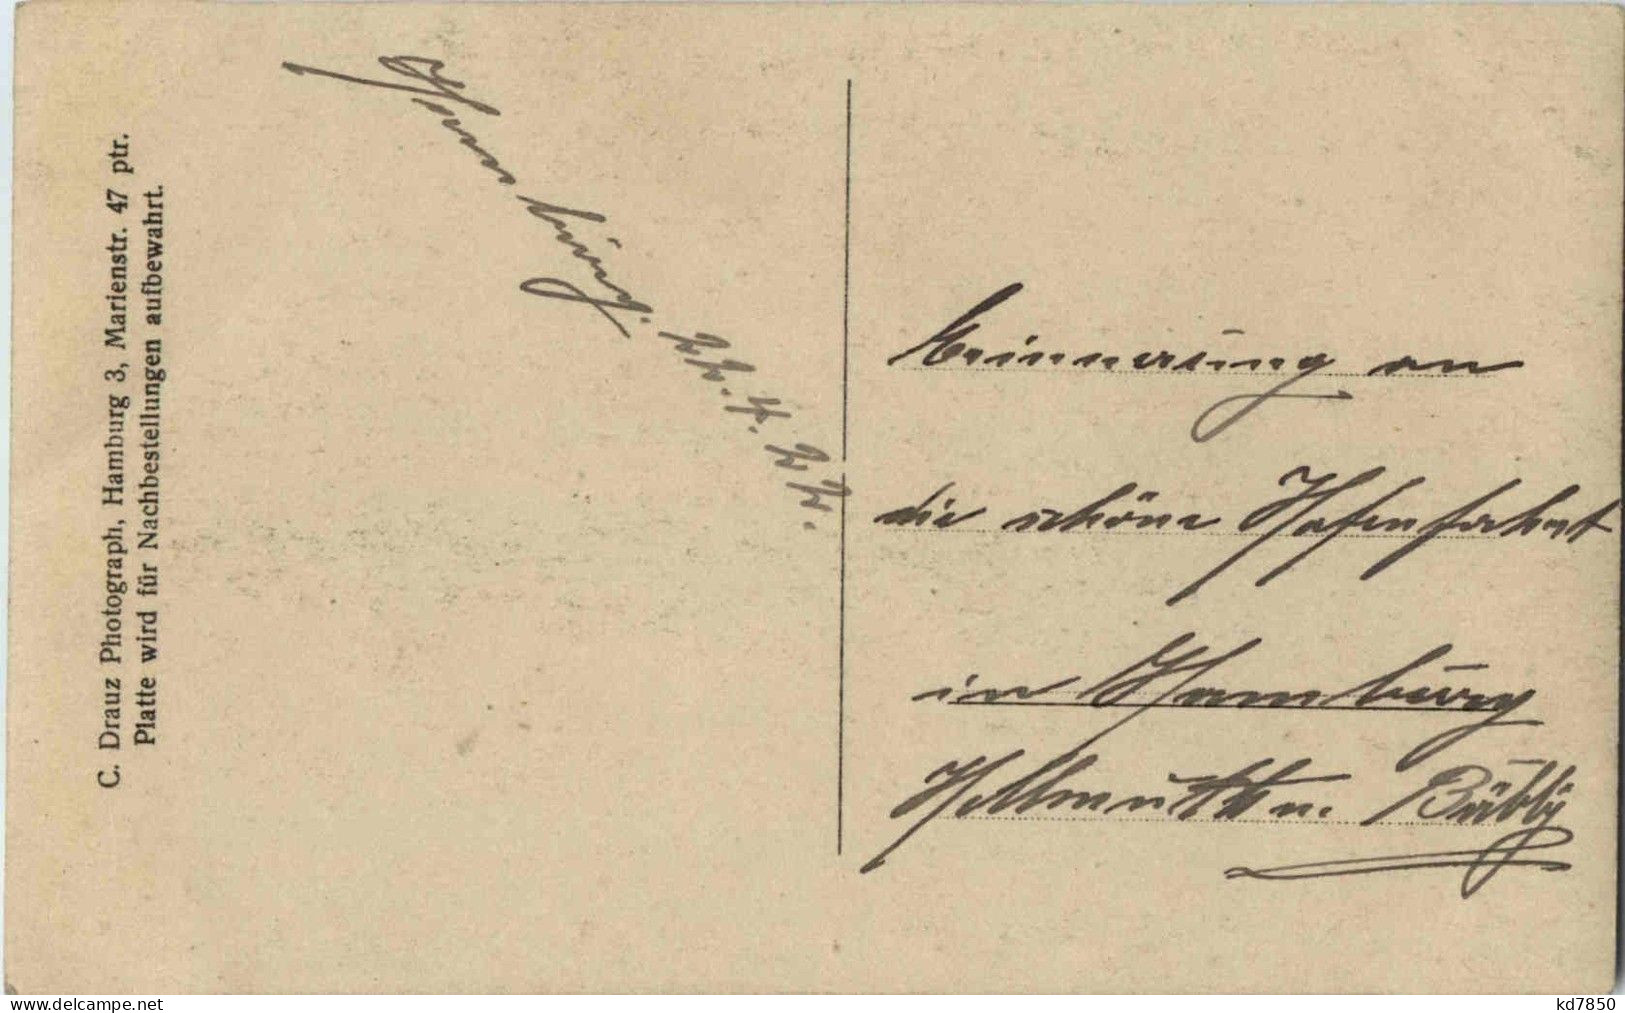 C. Drauz Photograph, Hamburg 3, Marienstr. 47 ptr.
Platte wird für Nachbestellungen aufbewahrt.
Hamburg. 22.4.24.
Erinnerung an
die schöne Hafenfahrt
in Hamburg
Hellmuth u.
www.delcampe.net
kd7850